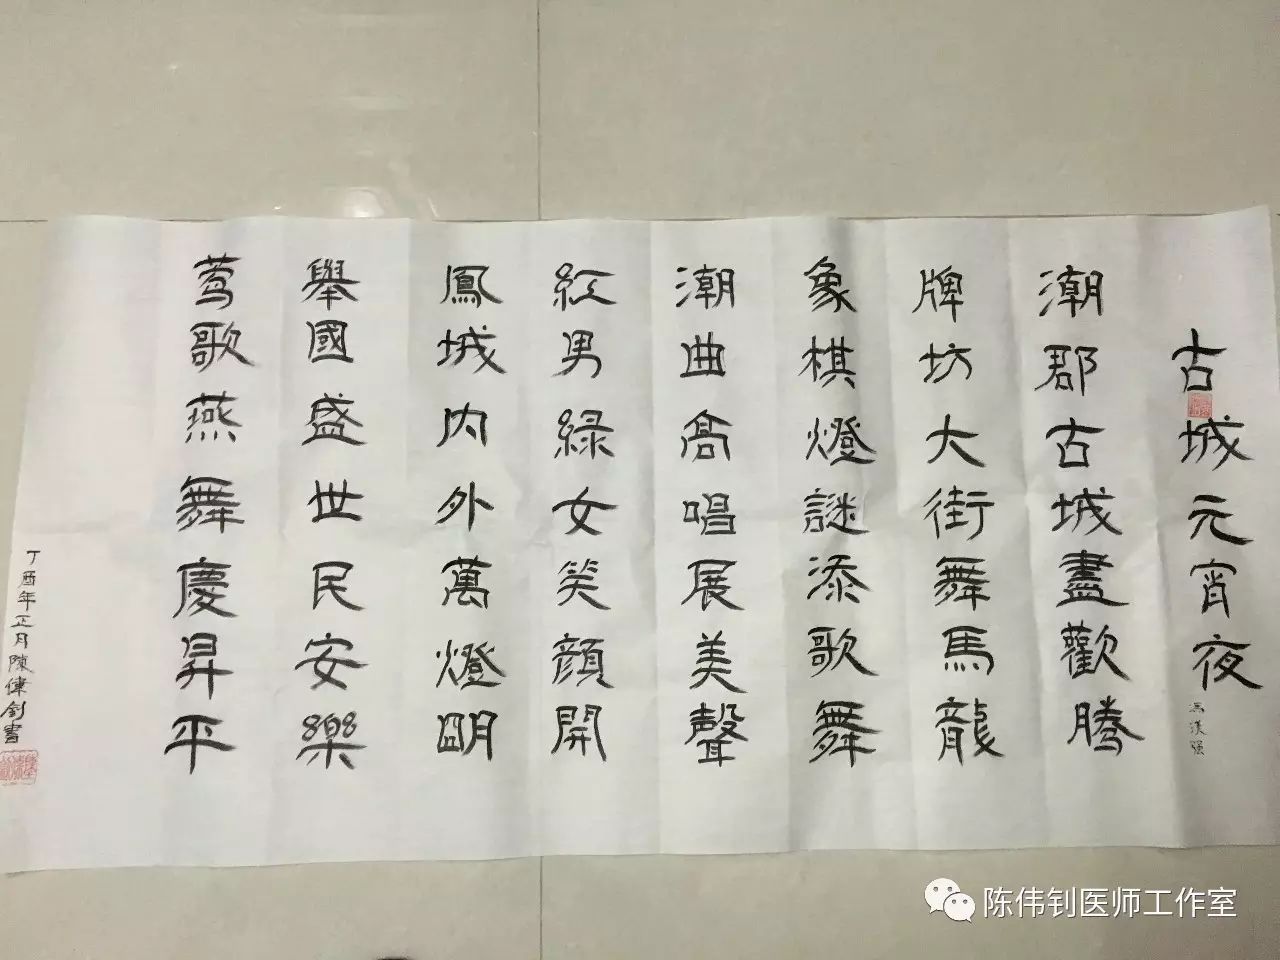 古城元宵夜
馮漢强
潮郡古城盡歡騰
牌坊大街舞馬龍
象棋燈謎添歌舞
潮曲高唱展美聲
紅男綠女笑顏開
鳳城內外萬燈明
舉國盛世民安樂
莺歌燕舞慶昇平
丁酉年正月陳偉釗書
陈伟钊医师工作室